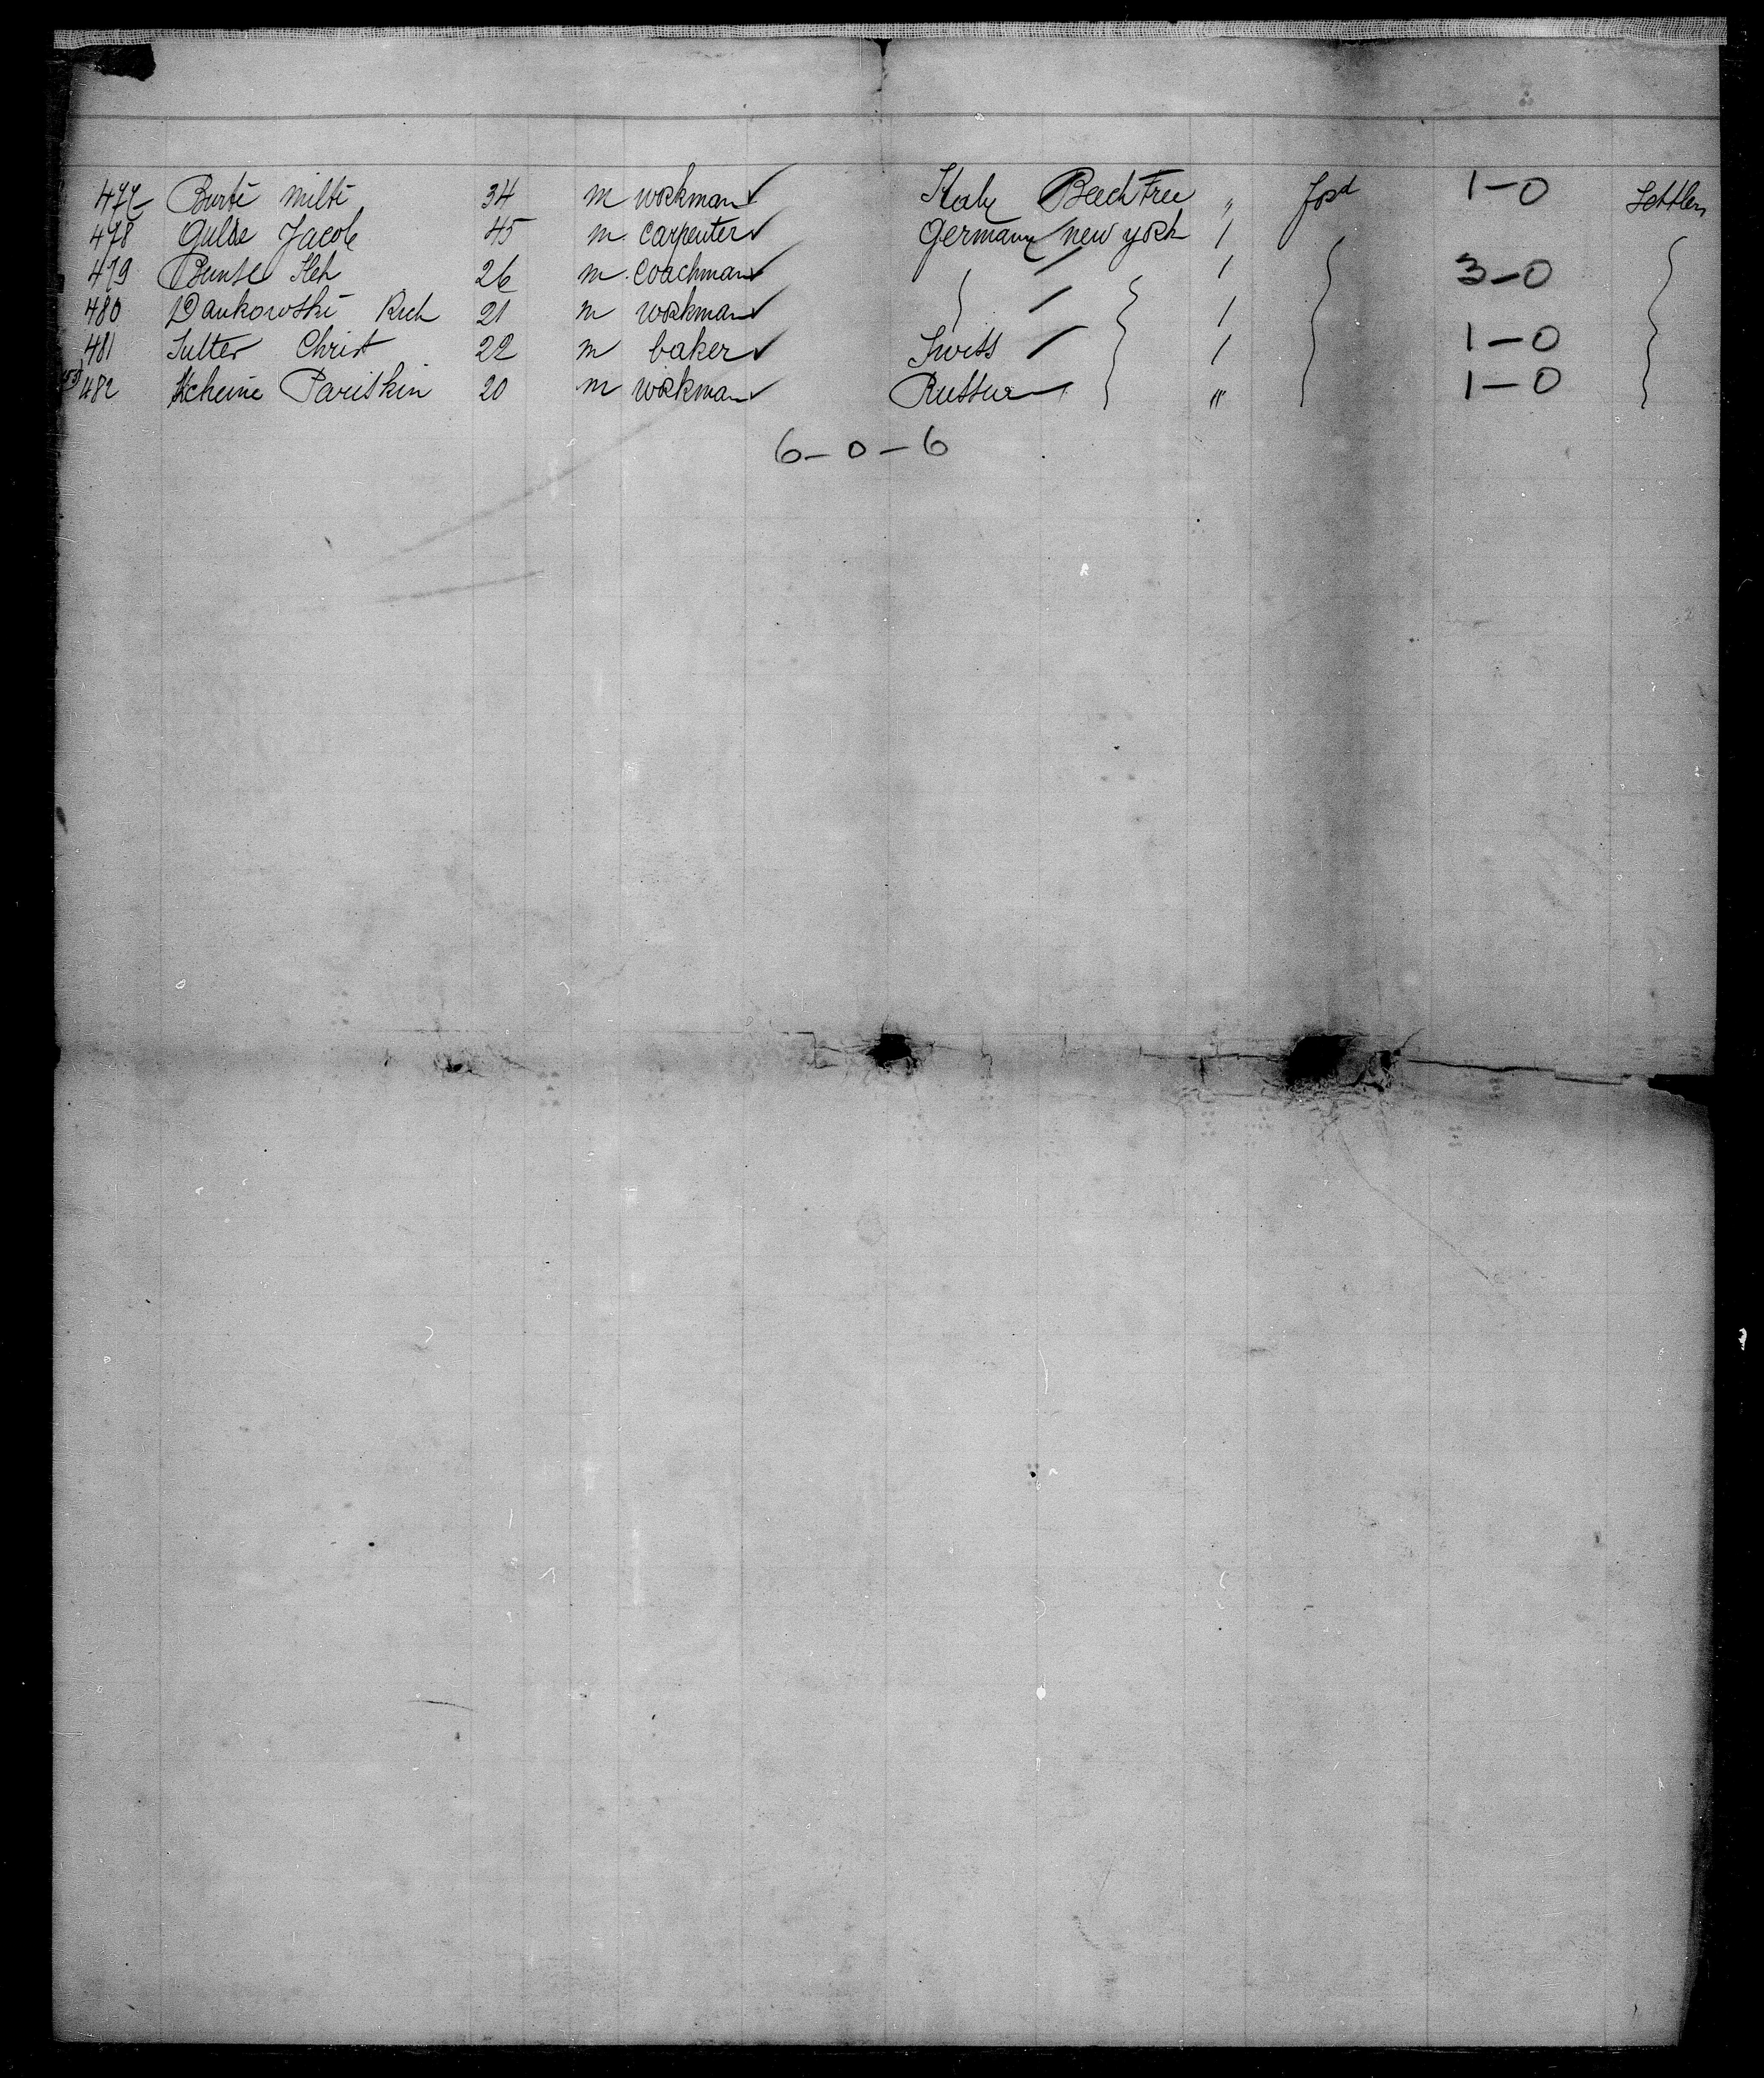 477 Burte Milte 34 m workman ✓ Italy Beech Tree " 1-0 Settlers
478 Gulde Jacob 45 m. carpenter ✓ Germany new york /
479 Bunse 26 m. coachman ✓ / / 3-0
480 Dankowski Rich 21 m workman ✓ / /
481 Sutter Christ 22 m baker ✓ Swiss / / 1-0
482 Scheine Pariskin 20 m workman ✓ Russia " 1-0
6-0-6